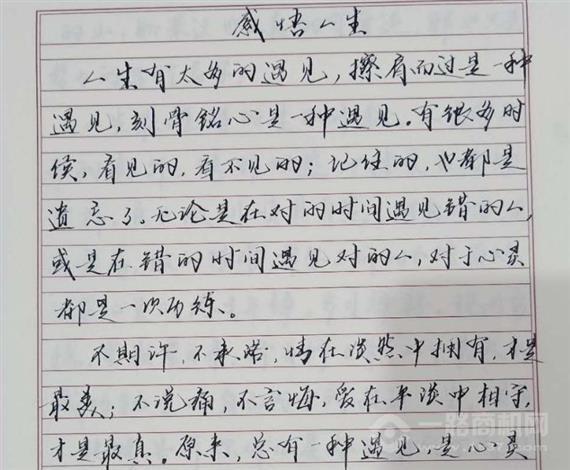 感悟人生
人生有太多的遇见，擦肩而过是一种
遇见，刻骨铭心是一种遇见。有很多时
候，看见的，看不见的；记住的，也都是
遗忘了。无论是在对的时间遇见错的人，
或是在错的时间遇见对的人，对于心灵
都是一次历练。
不期许，不承诺，情在淡然中拥有，才是
最美；不说痛，不言悔，爱在平淡中相守，
才是最真。原来，总有一种遇见，是心灵
一路商机网